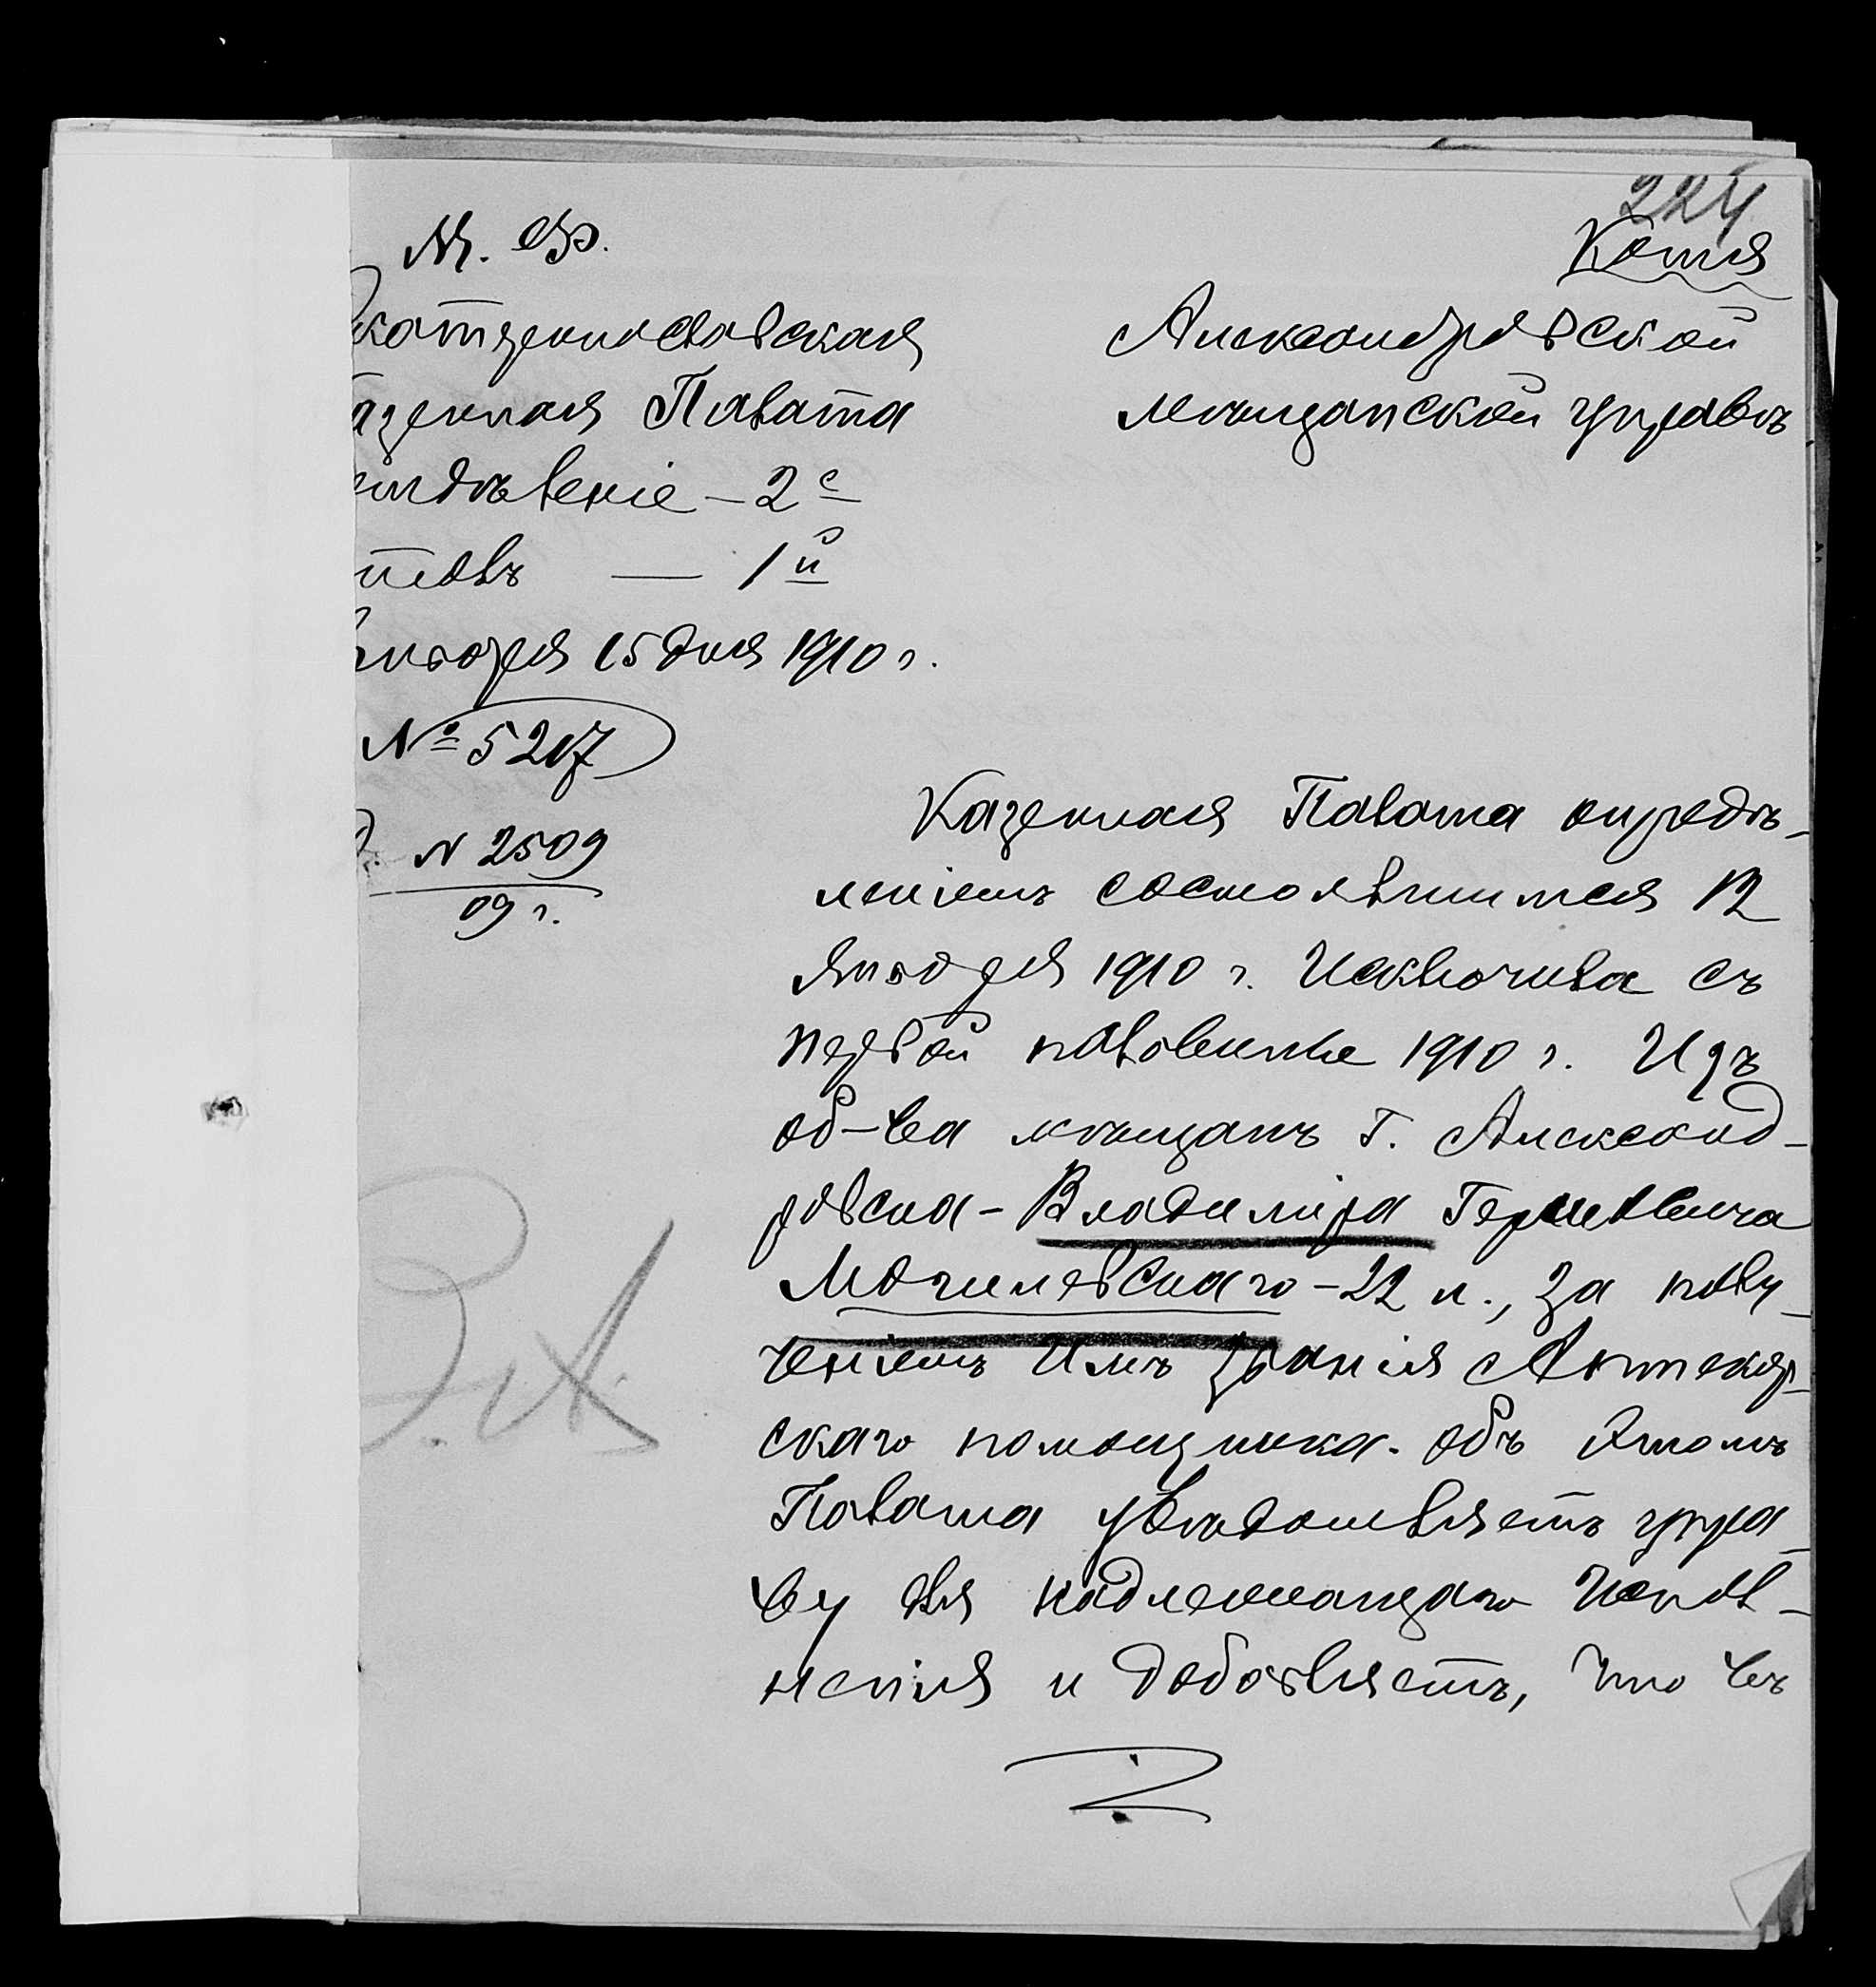 224
Копія
М. Ф.
катеринославская
азенная Палата
тдѣленіе – 2 е
толъ — 1 й
января 15 дня 1910 г.
№ 5217
№ 2509
09 г.
Александровской
мѣщанской управѣ
Казенная Палата опредѣ-
леніемъ состоявшимся 12
января 1910 г. Исключила съ
первой половины 1910 г. Изъ
об-ва мѣщанъ г. Александ-
ровска – Владиміра
Могилевскаго – 22 л., за полу-
ченіемъ имъ званія Аптекар-
скаго помощника. Объ этомъ
Палата увѣдомляетъ упра-
ву для надлежащаго Испол-
ненія и добавляетъ, что въ
Э. А.